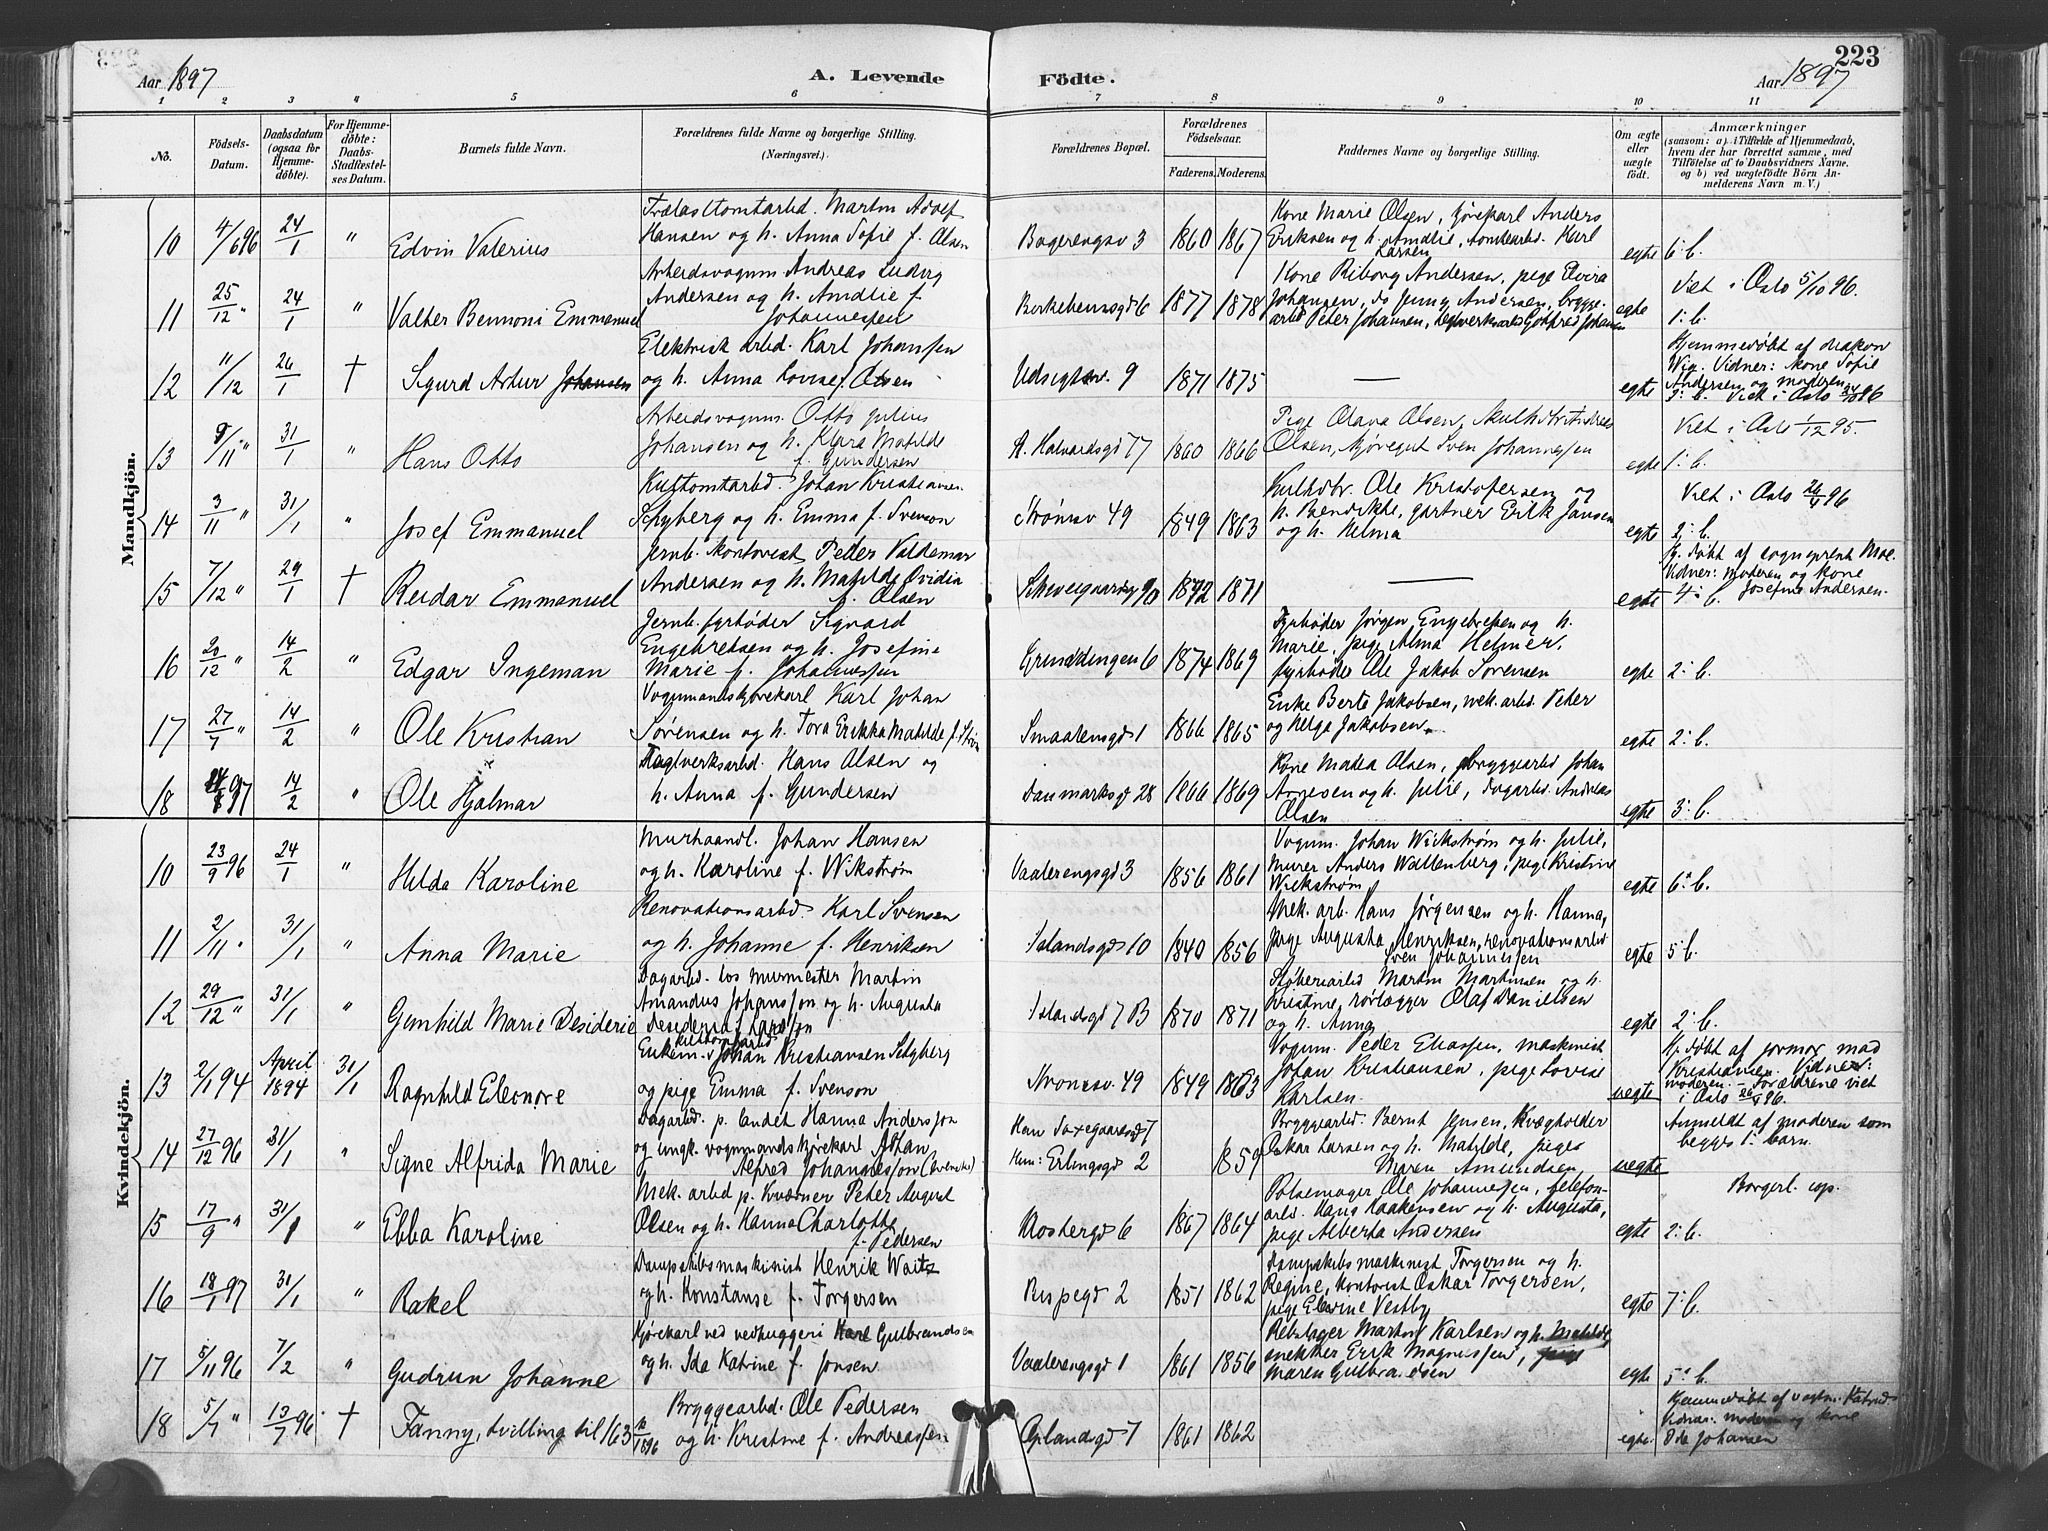 223
Aar 1897
A. Levende
Födte.
Aar 1897
1 2 3 " 5 6 7 8 9 10 11
No.
Födsels-
Datum.
Daabsdatum
(ogsaa for
Hjemme-
döbte).
For Hjemme-
döbte:
Daabs-
Stadfæstel-
ses Datum.
Barnets fulde Navn.
Forældrenes fulde Navne og borgerlige Stilling.
(Næringsvei.)
Forældrenes Bopæl.
Forældrenes
Födselsaar.
Faderens. Moderens.
Faddernes Navne og borgerlige Stilling.
Om ægte
eller
uægte
födt.
Anmærkninger
(saasom: a) i Tilfælde af Hjemmedaab,
hvem der har forrettet samme, med
Tilföielse af to Daabsvidners Navne,
og b) ved uægtefödte Börn An-
melderens Navn m. V.)
Mandkjön.
10 4/6 96 24/1 " Edvin Valerius
Trælasttomtarbd. Martin Adolf
Hansen og h. Anna Sofie f. Olsen
Bagerengsv 3 1860 1867
Kone Marie Olsen, kjørekarl Anders
Eriksen og h. Amalie, tomtearbd. Karl
Larsen
egte 6: b.
11 25/12 " 24/1 " Valter Bennoni Emmanuel
Arbeidsvognm. Andreas Ludvig
Andersen og h. Amalie f.
Johannessen
Birkebeinsgd 6 1877 1878
Kone Riborg Andersen, pige Elvira
Johansen, do Jenny Andersen, brygge-
arbd Peter Johansen, teglverksarbd Gotfred Johansen
egte 1: b.
Viet i Oslo 5/10 96.
12 11/12 26/1 † Sigurd Artur Johansen
Elektrisk arbd. Karl Johansen
og h. Anna Lovise f. Olsen
Udsigtsv. 9 1871 1875 —
egte
Hjemmedøbt af diakon
Wig. Vidner: kone Sofie
Andersen og moderen
2: b. Viet i Oslo 24/10 96
13 9/11 " 31/1 " Hans Otto
Arbeidsvognm. Otto Julius
Johansen og h. Klara Matilde
f. Gundersen
St. Halvardsgd 77 1860 1866
Pige Olava Olsen,
Olsen, kjøregut Sven Johannessen
egte 1: b.
Viet i Oslo 1/12 95.
14 3/11 " 31/1 " Josef Emmanuel
Kultomtarbd. Johan Kristiansen
og h. Emma f. Svenson
Strømsv 49 1849 1863
Kulhdbr. Ole Kristofersen og
h. Bendikke, gartner Erik Jansen
og h. Helma
egte 2: b.
Viet i Oslo 26/4 96
15 7/12 " 29/1 † Reidar Emmanuel
Jernb. kontorist Peder Valdemar
Andersen og h. Matilde Ovidia
f. Olsen
Schweigaardsg 90 1872 1871 —
egte 4: b.
Hj. døbt af sogneprest Moe.
Vidner: moderen og kone
Josefine Andersen.
16 20/12 " 14/2 " Edgar Ingeman
Jernb. fyrbøder Sigvard
Engebretsen og h. Josefine
Marie f. Johannessen
Grundingen 6 1874 1869
Fyrbøder Jørgen Engebretsen og h.
Marie, pige Alma Helmer,
fyrbøder Ole Jakob Sørensen
egte 2: b.
17 27/7 " 14/2 " Ole Kristian
Vognmandskjørekarl Karl Johan
Sørensen og h. Tora Erikka Matilde f.
Smaalensgd 1 1866 1865
Enke Berte Jakobsen, mek. arbd. Peter
og Helga Jakobsen
egte 2: b.
18 97 14/2 " Ole Hjalmar
Teglverksarbd. Hans Olsen og
h. Anna f. Gundersen
Danmarksgd 28 1866 1869
Kone Matea Olsen, bryggearbd Johan
Arnesen og h. Julie, dagarbd. Andreas
Olsen
egte 3: b.
Kvindekjön.
10 23/9 96 24/1 " Hilda Karoline
Murhaandl. Johan Hansen
og h. Karoline f. Wikstrøm
Vaalerengsgd 3 1856 1861
Vognm. Johan Wickstrøm og h. Julie,
murer Anders Wattenberg, pige Kristine
Wickstrøm
egte 6: b.
11 2/11 " 31/1 " Anna Marie
Renovationsarbd. Karl Svensen
og h. Johanne f. Henriksen
Islandsgd 10 1840 1856
Mek. arb. Hans Jørgensen og h. Hanna,
pige Augusta Henriksen, renovationsarbd
Sven Johannessen
egte 5: b.
12 29/12 " 31/1 " Gunhild Marie Desiderie
Dagarbd. hos murmester Martin
Amandus Johansson og h. Augusta
Desideria f. Larsson
Islandsgd 7 B 1870 1871
Støberiarbd Martin Martinsen og h.
Kristine, rørlægger Olaf Danielsen
og h. Anna
egte 2: b.
13 2/1 94 April 1894 31/1 Ragnhild Eleonore
Enkem. kultomtarbd Johan Kristiansen
og pige Emma f. Svenson
Strømsv 49 1849 1863
Vognm. Peder Eliassen, maskinist
Johan Kristiansen, pige Lovise
Karlsen
uegte
Hj. døbt af jormor mad
Kristiansen. Vidner:
moderen. – Forældrene viet
i Oslo 26/4 96.
14 27/12 96 31/1 " Signe Alfrida Marie
Dagarbd. p. landet Hanna Andersson
og ungk. vognmandskjørekarl Johan
Alfred Johannesson (svenske)
Han Saxegaardsgd 7
Hun: Erlingsgd 2 1859
Bryggearbd. Bernt Jensen, kvægholder
Oskar Larsen og h. Matilde, pige
Maren Amundsen
uegte
Anmeldt af moderen som
begges 1: barn.
15 17/9 " 31/1 " Ebba Karoline
Mek. arbd p. Kværner Peter August
Olsen og h. Hanna Charlotte
f. Pedersen
Klostergd 6 1867 1864
Pølsemager Ole Johannessen, telefon-
arb. Hans Haakensen og h. Augusta,
pige Alberta Andersen
egte 2: b.
Borgerl. cop.
16 18/1 97 31/1 " Rakel
Dampskibsmaskinist Henrik Waitz
og h. Konstanse f. Torgersen
Bispegd 2 1851 1862
Dampskibsmaskinist Torgersen og h.
Regine, kontorist Oskar Torgersen,
pige Elevine Vestby
egte 7: b.
17 5/11 96 7/2 " Gudrun Johanne
Kjørekarl ved vedhuggeri Karl Gulbrandsen
og h. Ida Katrine f. Jonsen
Vaalerengsgd 1 1861 1856
Rebslager Martin Karlsen og h. Matilde
snekker Erik Magnussen, pige
Maren Gulbrandsen
egte 5: b.
18 5/7 " 13/7 96 † Fanny, tvilling til 163 1896
Bryggearbd. Ole Pedersen
og h. Kristine f. Andreassen
Oplandsgd 7 1861 1862
egte.
Hjemmedøbt af
Vidner: moderen og kone
Ida Johansen